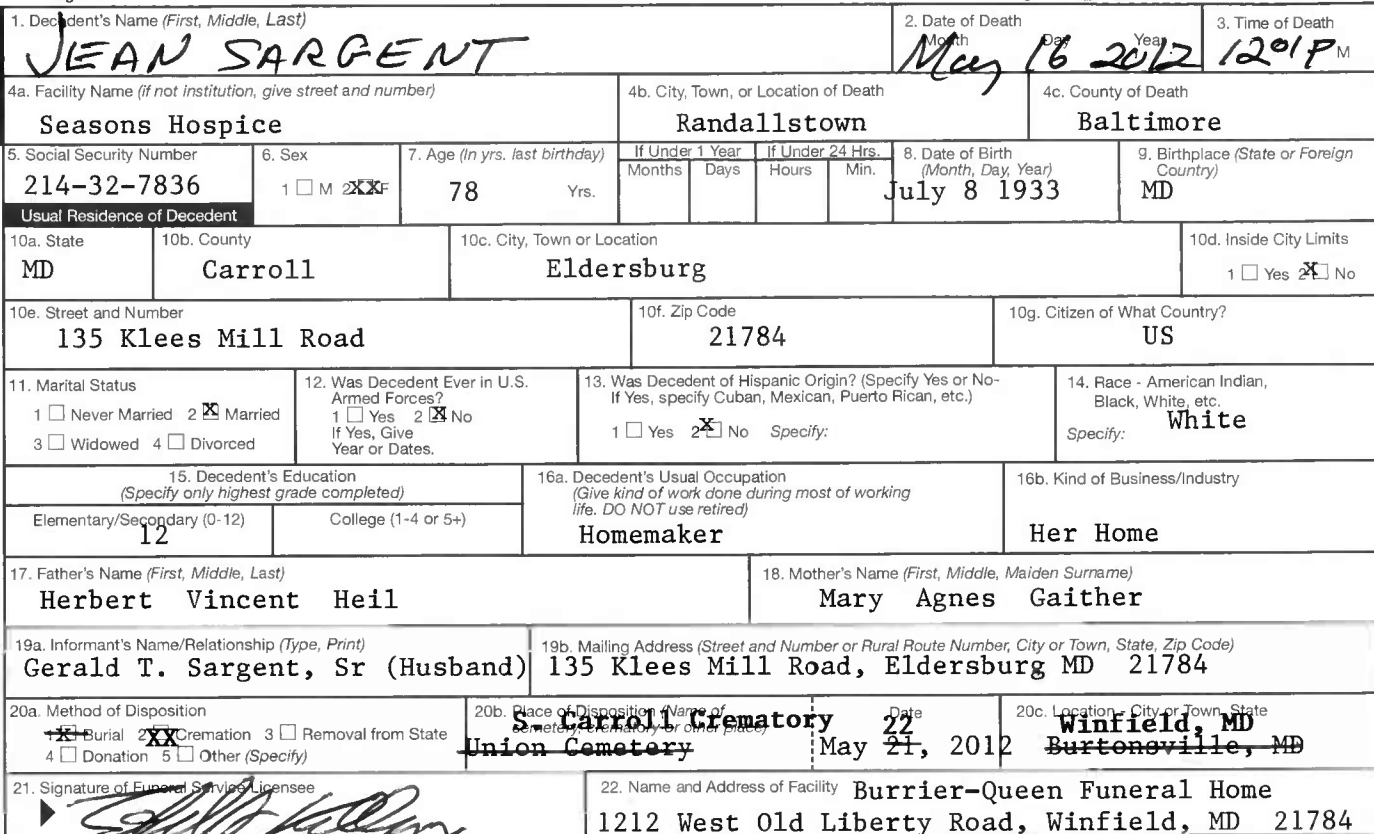 1. Decedent's Name (First, Middle, Last)
JEAN SARGENT
2. Date of Death
Month Day Year
May 16 2012
3. Time of Death
1201P M
4a. Facility Name (if not institution, give street and number)
Seasons Hospice
4b. City, Town, or Location of Death
Randallstown
4c. County of Death
Baltimore
5. Social Security Number
214-32-7836
6. Sex
1 ☐ M 2XXF
7. Age (In yrs. last birthday)
78 Yrs.
If Under 1 Year
Months Days
If Under 24 Hrs.
Hours Min.
8. Date of Birth
(Month, Day, Year)
July 8 1933
9. Birthplace (State or Foreign
Country)
MD
Usual Residence of Decedent
10a. State
MD
10b. County
Carroll
10c. City, Town or Location
Eldersburg
10d. Inside City Limits
1 ☐ Yes 2 X No
10e. Street and Number
135 Klees Mill Road
10f. Zip Code
21784
10g. Citizen of What Country?
US
11. Marital Status
1 ☐ Never Married 2 X Married
3 ☐ Widowed 4 ☐ Divorced
12. Was Decedent Ever in U.S.
Armed Forces?
1 ☐ Yes 2 X No
If Yes, Give
Year or Dates.
13. Was Decedent of Hispanic Origin? (Specify Yes or No-
If Yes, specify Cuban, Mexican, Puerto Rican, etc.)
1 ☐ Yes 2 X No Specify:
14. Race - American Indian,
Black, White, etc.
Specify: White
15. Decedent's Education
(Specify only highest grade completed)
Elementary/Secondary (0-12)
12
College (1-4 or 5+)
16a. Decedent's Usual Occupation
(Give kind of work done during most of working
life. DO NOT use retired)
Homemaker
16b. Kind of Business/Industry
Her Home
17. Father's Name (First, Middle, Last)
Herbert Vincent Heil
18. Mother's Name (First, Middle, Maiden Surname)
Mary Agnes Gaither
19a. Informant's Name/Relationship (Type, Print)
Gerald T. Sargent, Sr (Husband)
19b. Mailing Address (Street and Number or Rural Route Number, City or Town, State, Zip Code)
135 Klees Mill Road, Eldersburg MD 21784
20a. Method of Disposition
1 X Burial 2 XX Cremation 3 ☐ Removal from State
4 ☐ Donation 5 ☐ Other (Specify)
20b. Place of Disposition (Name of
cemetery, crematory or other place)
S. Carroll Crematory
Union Cemetery
Date
22
May 21, 2012
20c. Location - City or Town, State
Winfield, MD
Burtonsville, MD
21. Signature of Funeral Service Licensee
22. Name and Address of Facility Burrier-Queen Funeral Home
1212 West Old Liberty Road, Winfield, MD 21784